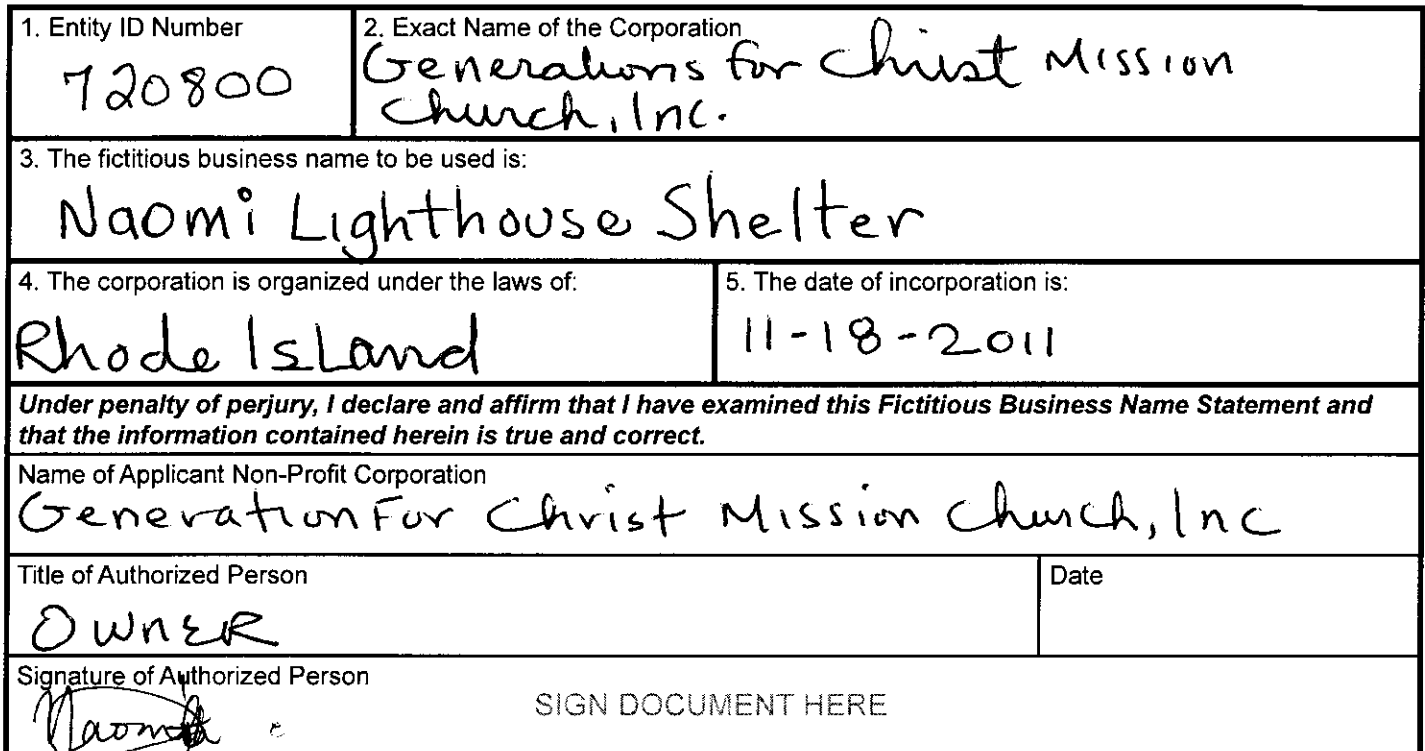 1. Entity ID Number
720800
2. Exact Name of the Corporation
Generations for Christ Mission
Church, Inc.
3. The fictitious business name to be used is:
Naomi Lighthouse Shelter
4. The corporation is organized under the laws of:
Rhode Island
5. The date of incorporation is:
11-18-2011
Under penalty of perjury, I declare and affirm that I have examined this Fictitious Business Name Statement and
that the information contained herein is true and correct.
Name of Applicant Non-Profit Corporation
Generation For Christ Mission Church, Inc
Title of Authorized Person
OWNER
Date
Signature of Authorized Person
SIGN DOCUMENT HERE